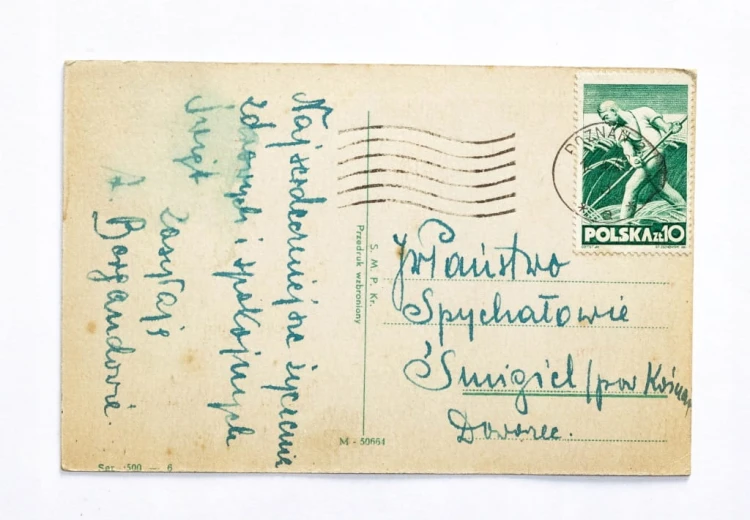 Najserdeczniejsze życzenie
zdrowych i spokojnych
Świąt
zasyłają
A. Borgandowie.
S. M. P. Kr.
Przedruk wzbroniony
M - 50664
Ser. 500 — 6
POZNAŃ
POLSKA ZŁ 10
JWPaństwo
Spychałowie
Śmigiel/pow Kościan
Dworzec.